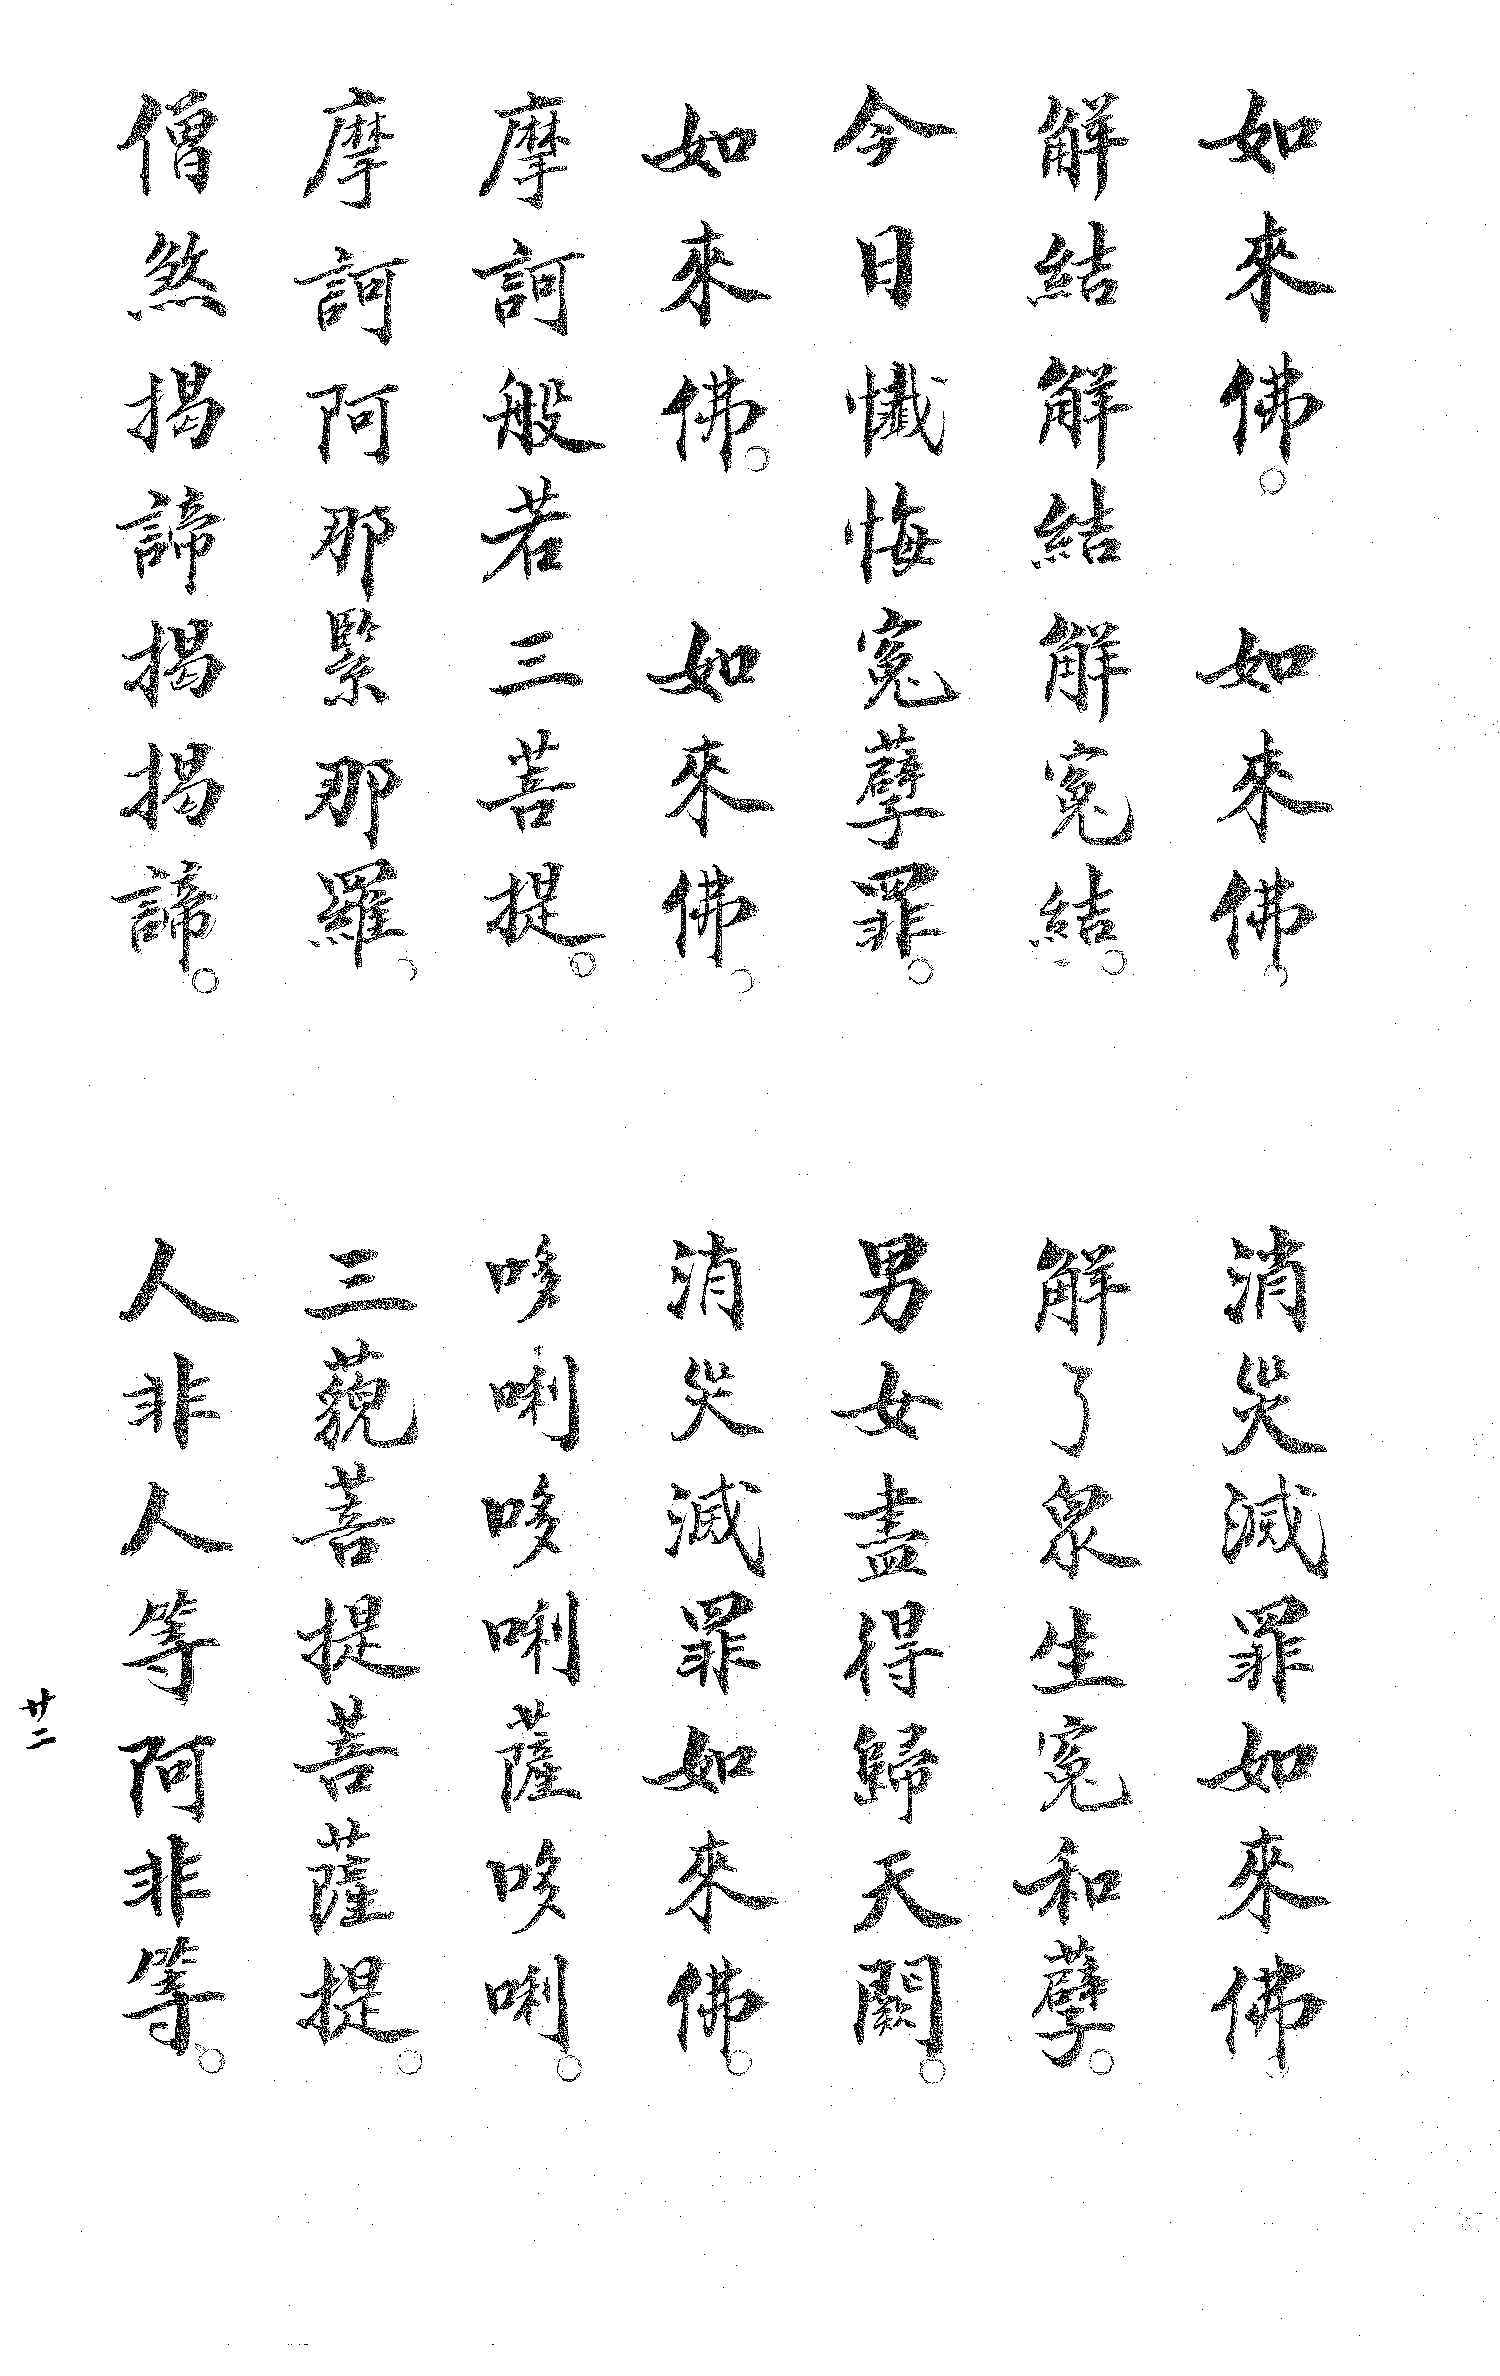 如來佛。如來佛。消災滅罪如來佛。
解結解結解冤結。解了眾生冤和孽。
今日懺悔冤孽罪。男女盡得歸天闕。
如來佛。如來佛。消災滅罪如來佛。
摩訶般若三菩提。哆唎哆唎薩哆唎。
摩訶阿那緊那羅。三藐菩提菩薩提。
僧煞揭諦揭揭諦。人非人等阿非等。
廿二